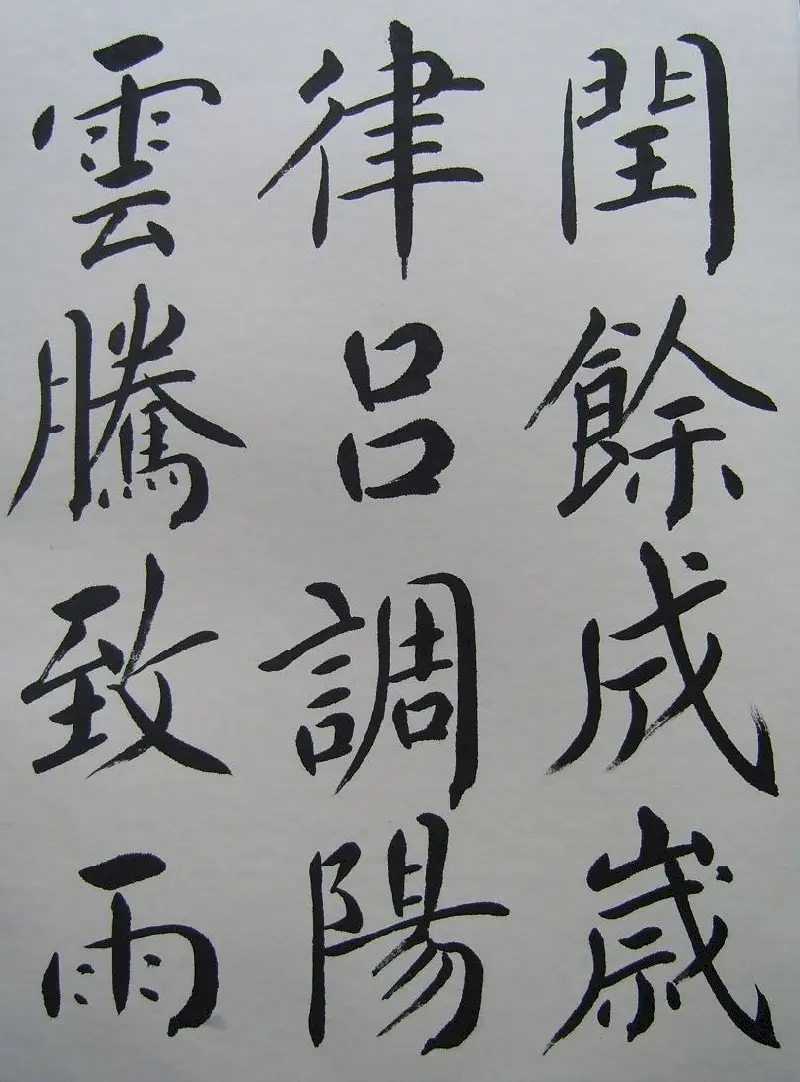 閏餘成歲
律呂調陽
雲騰致雨